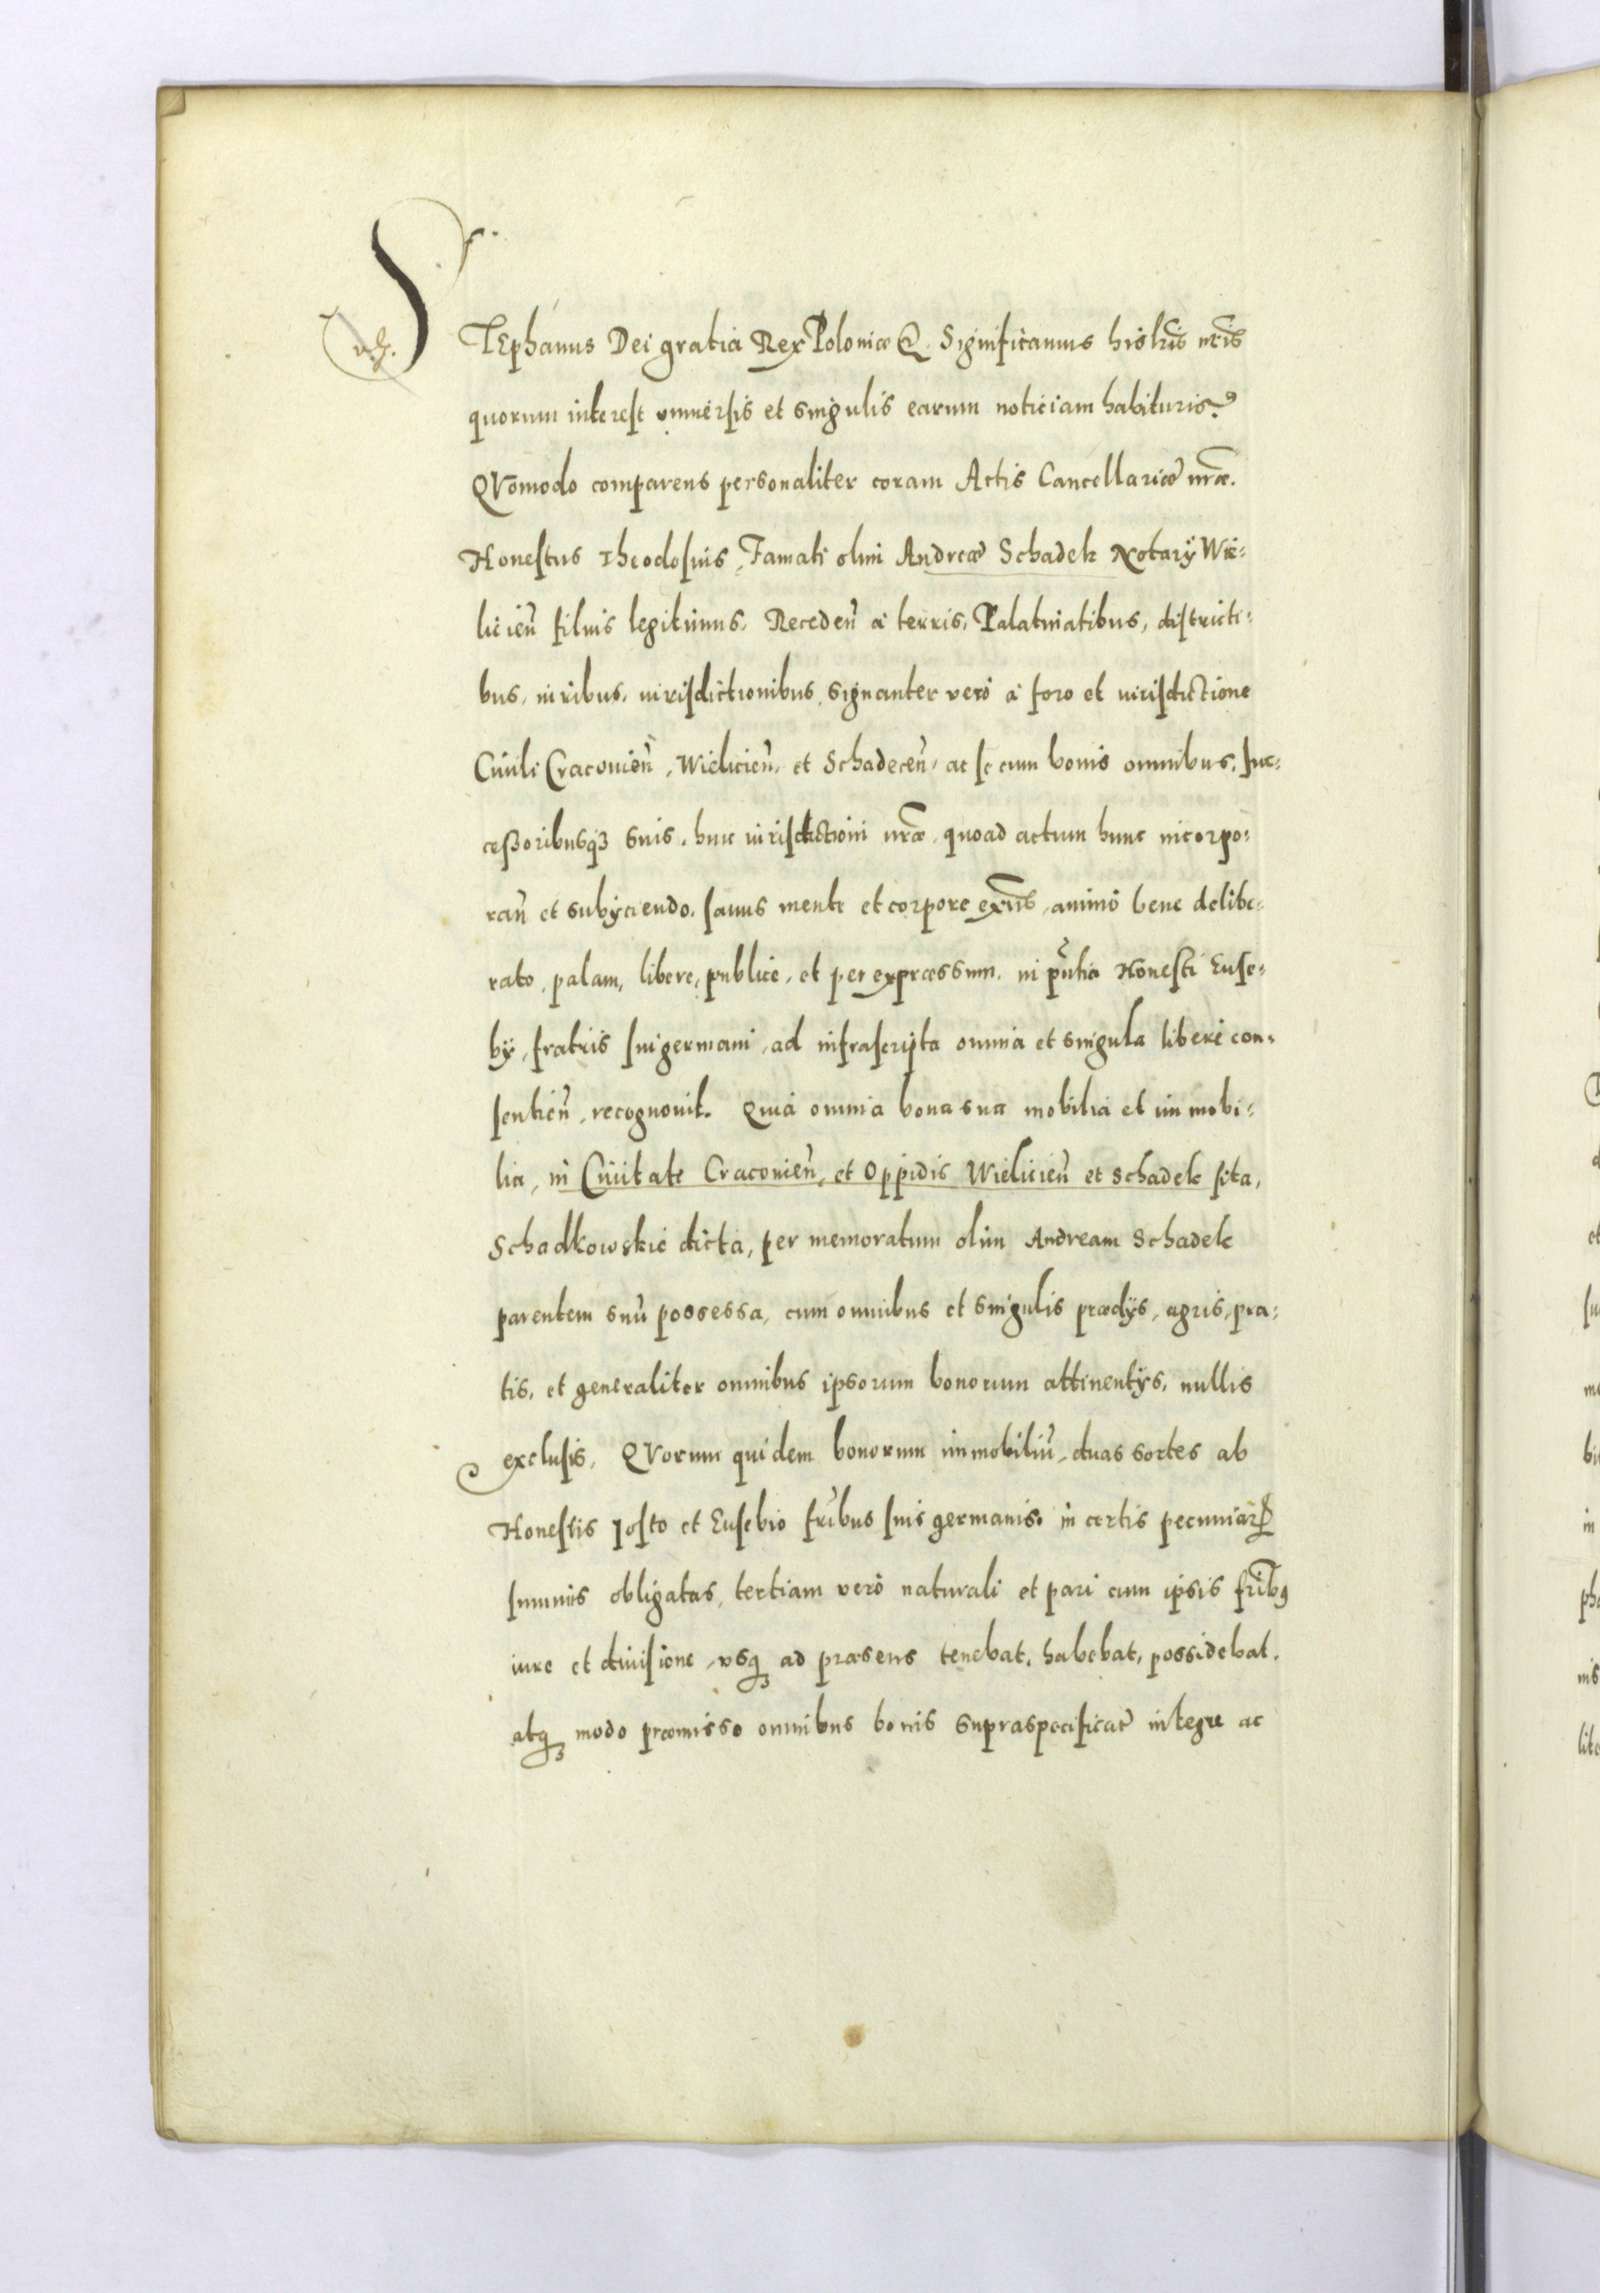 STEphanus Dei gratia Rex Poloniæ &. Significamus his lris nris
quorum interest vniuersis et singulis earum noticiam habituris.
QVomodo comparens personaliter coram Actis Cancellariæ nræ.
Honestus Theodosius, Famati olim Andreæ Schadek Notarÿ Wie=
licien̄ filius legitimus. Receden̄ à terris, Palatinatibus, districti=
bus, iuribus, iurisdictionibus, signanter verò à foro et iurisdictione
Ciuili Cracouien̄, Wielicien̄, et Schadecen̄, ac se cum bonis omnibus, suc=
ceßoribusq3 suis, huic iurisdictioni nræ, quoad actum hunc incorpo=
ran̄ et subÿciendo, sanus mente et corpore exñs, animo bene delibe=
rato, palam, libere, publice, et per expræssum, in pñtia Honesti Euse=
bÿ, fratris sui germani, ad infrascripta omnia et singula libere con=
sentien̄, recognouit. Quia omnia bona sua mobilia et immobi=
lia, in Ciuitate Cracouien̄, et Oppidis Wielicien̄ et Schadek sita,
Schadkowskie dicta, per memoratum olim Andream Schadek
parentem suū possessa, cum omnibus et singulis prædÿs, agris, pra=
tis, et generaliter omnibus ipsorum bonorum attinentÿs, nullis
exclusis. QVorum quidem bonorum immobiliū, duas sortes ab
Honestis Josto et Eusebio fribus suis germanis, in certis pecuniar
summis obligatas, tertiam verò naturali et pari cum ipsis frib9
iure et diuisione, vsq3 ad præsens tenebat, habebat, possidebat.
atq3 modo præmisso omnibus bonis supraspecificat integre ac